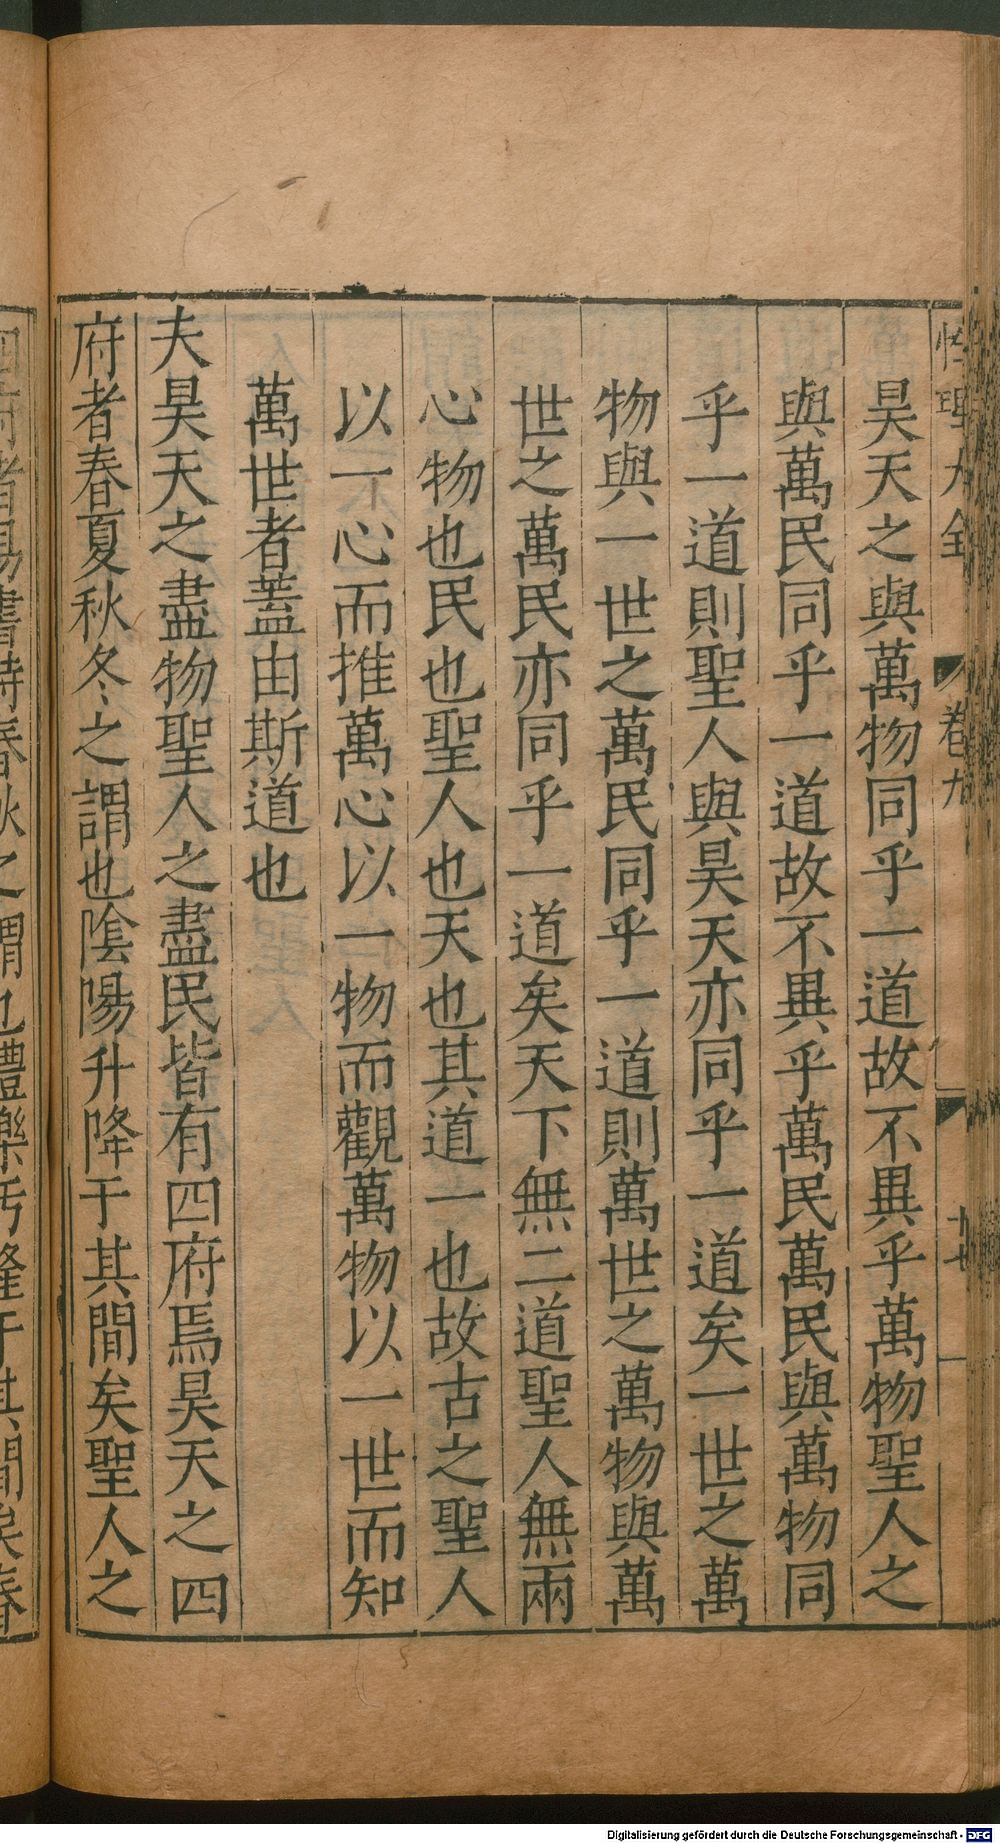 性理大全 卷九
昊天之與萬物同乎一道故不異乎萬物聖人之
與萬民同乎一道故不異乎萬民萬民與萬物同
乎一道則聖人與昊天亦同乎一道矣一世之萬
物與一世之萬民同乎一道則萬世之萬物與萬
世之萬民亦同乎一道矣天下無二道聖人無兩
心物也民也聖人也天也其道一也故古之聖人
以一心而推萬心以一物而觀萬物以一世而知
萬世者蓋由斯道也
夫昊天之盡物聖人之盡民皆有四府焉昊天之四
府者春夏秋冬之謂也陰陽升降于其間矣聖人之
四府者易書詩春秋之謂也禮樂汚隆于其間矣春
Digitalisierung gefördert durch die Deutsche Forschungsgemeinschaft - DFG